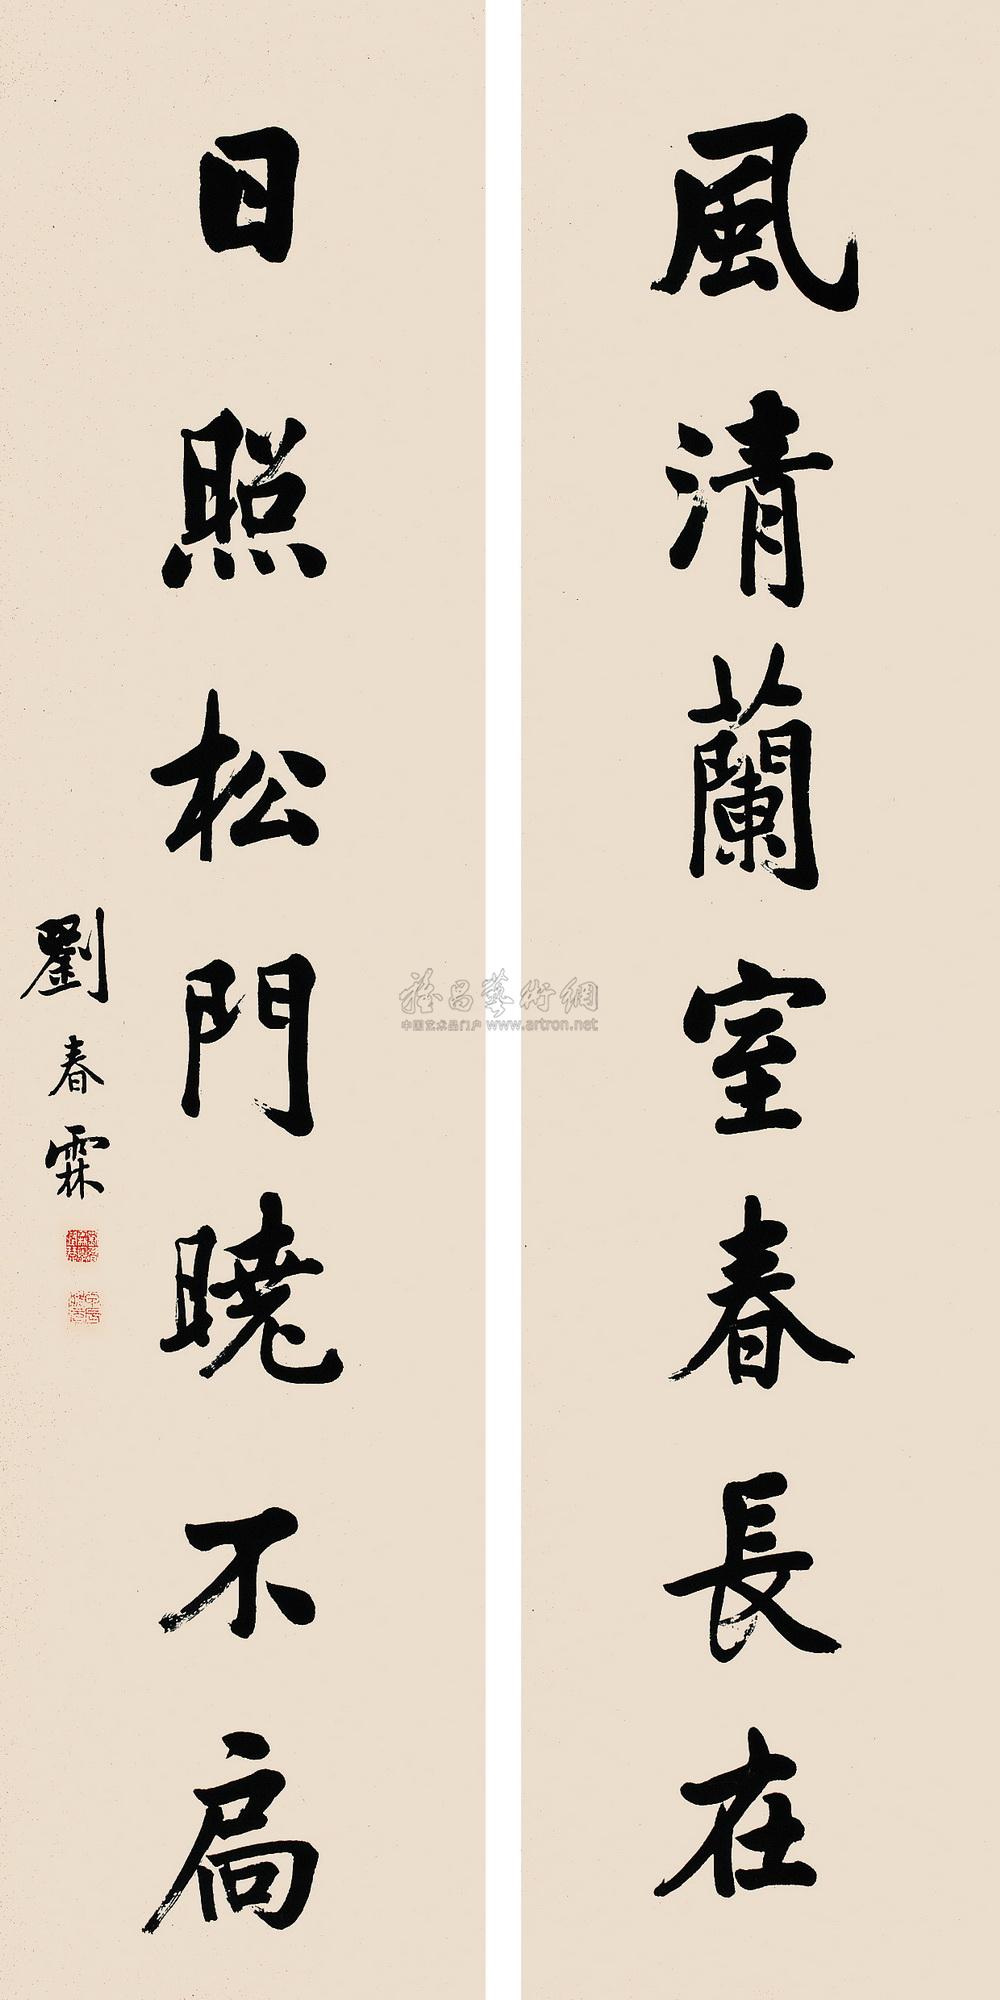 風清蘭室春長在
日照松門曉不扃
劉春霖
雅昌藝術網
中国艺术品门户 www.artron.net